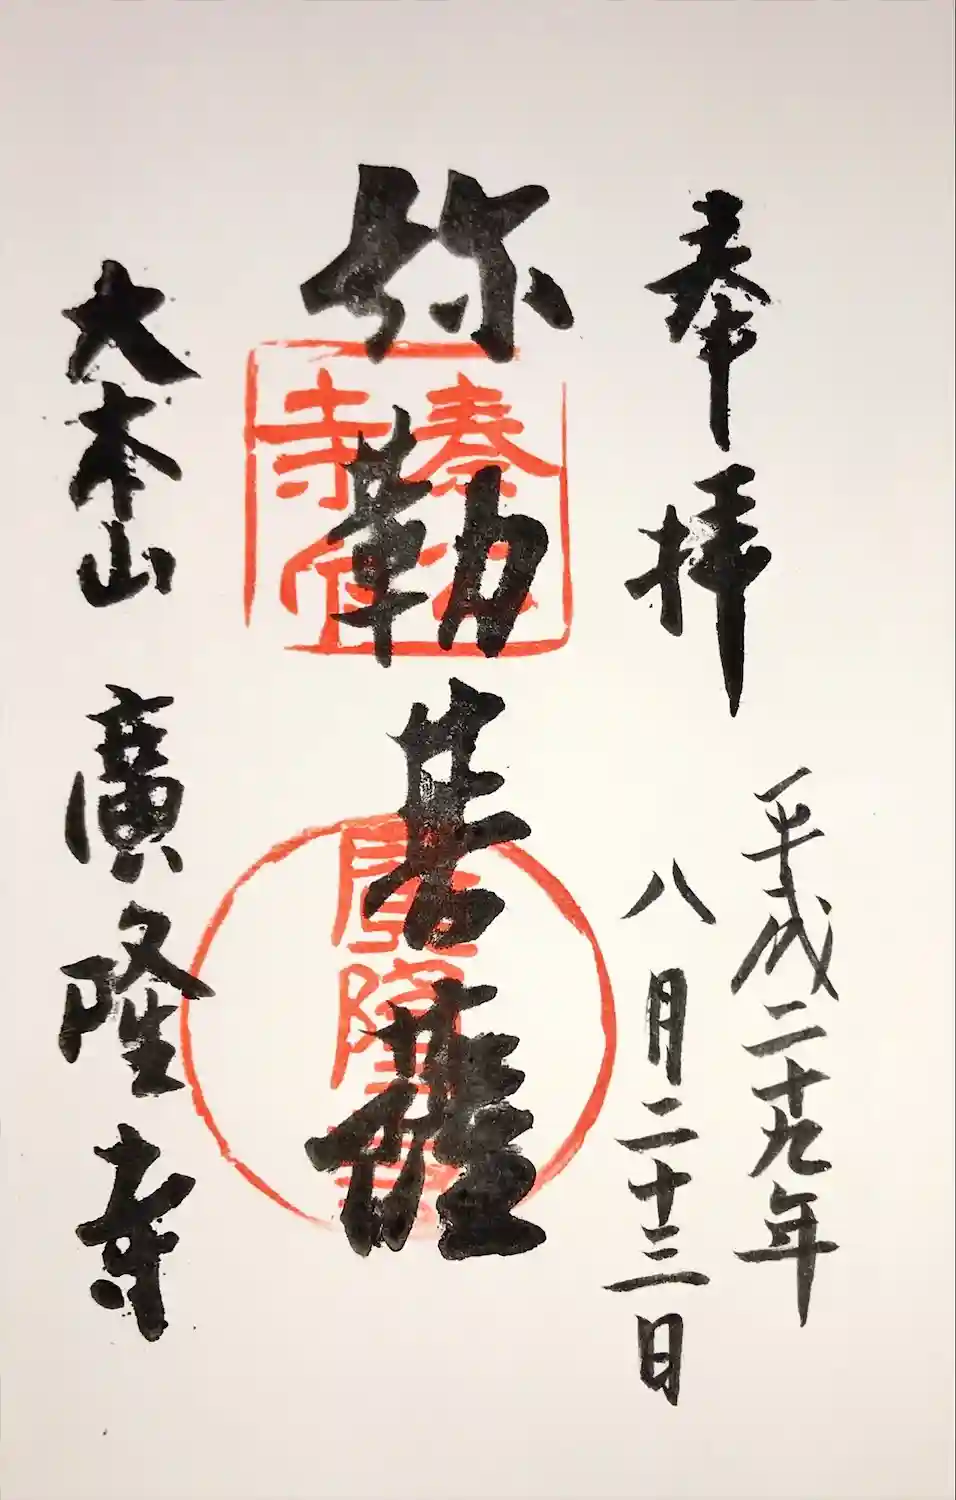 奉拝
平成二十九年
八月二十三日
弥勒菩薩
大本山 廣隆寺
廣隆寺